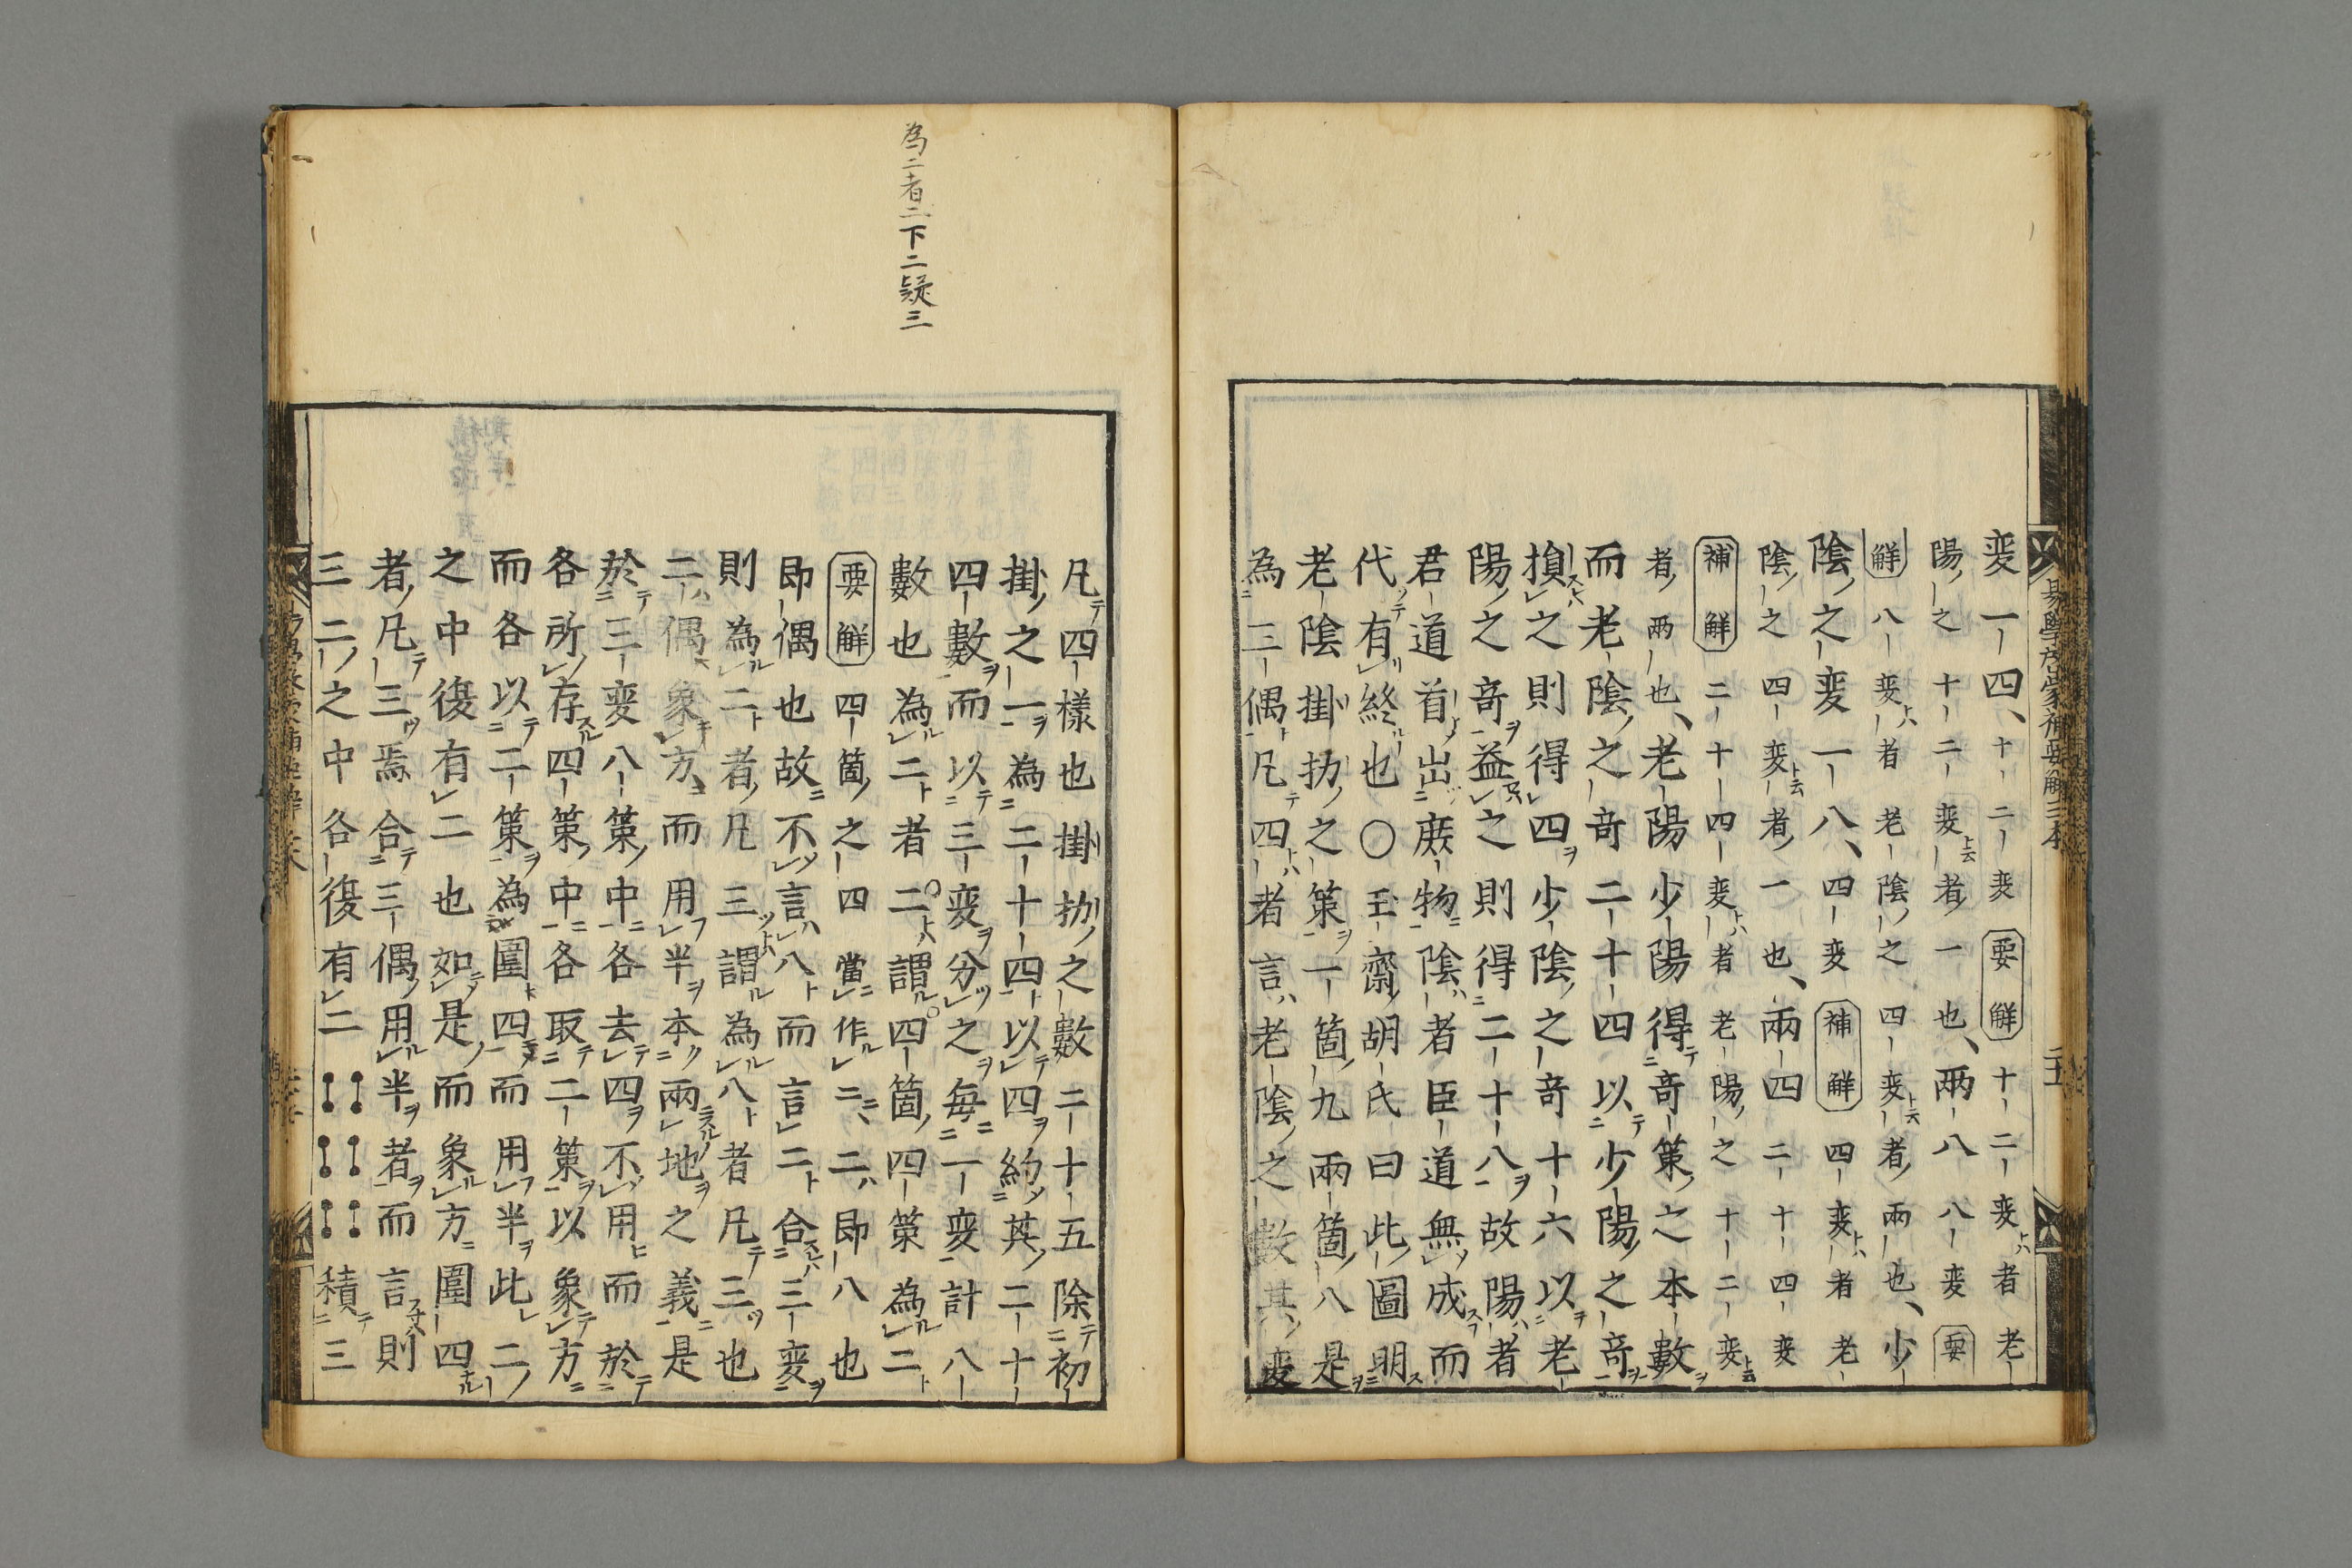 変一四、十二変要解十二変者老
陽之十二変者一也、両八八変要
解八変者老陰之四変者両也、少
陰之変一八、四変補解四変者老
陰之四変者一也、両四二十四変
補解二十四変者老陽之十二変
者両也、老陽少陽得竒策之本數
而老陰之竒二十四以少陽之竒
損之則得四少陰之竒十六以老
陽之竒益之則得二十八故陽者
君道首出庶物陰者臣道無成而
代有終也○玉齋胡氏曰此圖明
老陰掛扐之策一箇九兩箇八是
為三偶凡四者言老陰之數其変
易學啓蒙補要解三本
二十五
為二者二下二疑三
凡四樣也掛扐之數二十五除初
掛之一為二十四以四約其二十
四數而以三変分之每一変計八
數也為二者二謂四箇四策為二
要解四箇之四當作二、二即八也
即偶也故不言八而言二合三変
則為二者凡三謂為八者凡三也
二偶象方而用半本兩地之義是
於三変八策中各去四不用而於
各所存四策中各取二策以象方
而各以二策為圍四而用半此二
之中復有二也如是而象方圍四
者凡三焉合三偶用半者而言則
三二之中各復有二積三